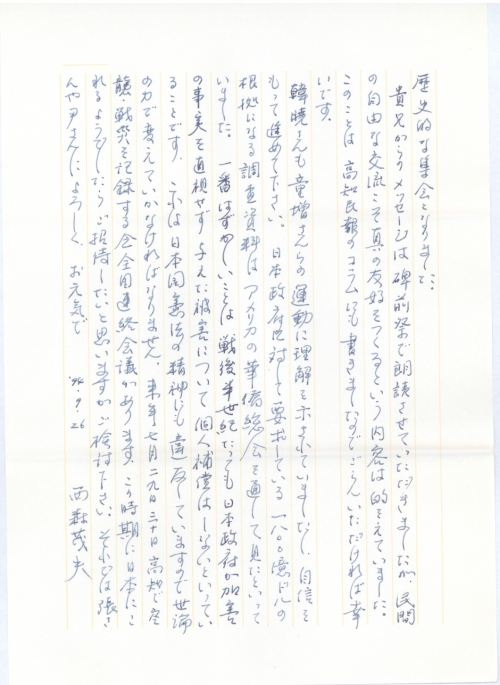 歴史的な集会となりました。
貴兄からのメッセージは碑前祭で朗読させていただきましたが、民間
の自由な交流こそ真の友好をつくるという内容は的をえていました。
このことは高知民報のコラムにも書きましたのでごらんいただければ幸
いです。
韓暁さんも童増さんらの運動に理解を示されていましたし、自信を
もって進めて下さい。日本政府に対して要求している一八〇〇億ドルの
根拠になる調査資料はアメリカの華僑総会を通して見たといって
いました。一番はずかしいことは戦後半世紀たっても日本政府が加害
の事実を直視せず与えた被害について個人補償はしないといってい
ることです。これは日本国憲法の精神にも違反していますので世論
の力で変えていかなければなりません。来年七月二九日三十日高知で空
襲・戦災を記録する会全国連絡会議があります。この時期に日本にこ
れるようでしたらご招待したいと思いますがご検討下さい。それでは張さ
んや尹さんによろしく。お元気で
'94.9.26
西森茂夫